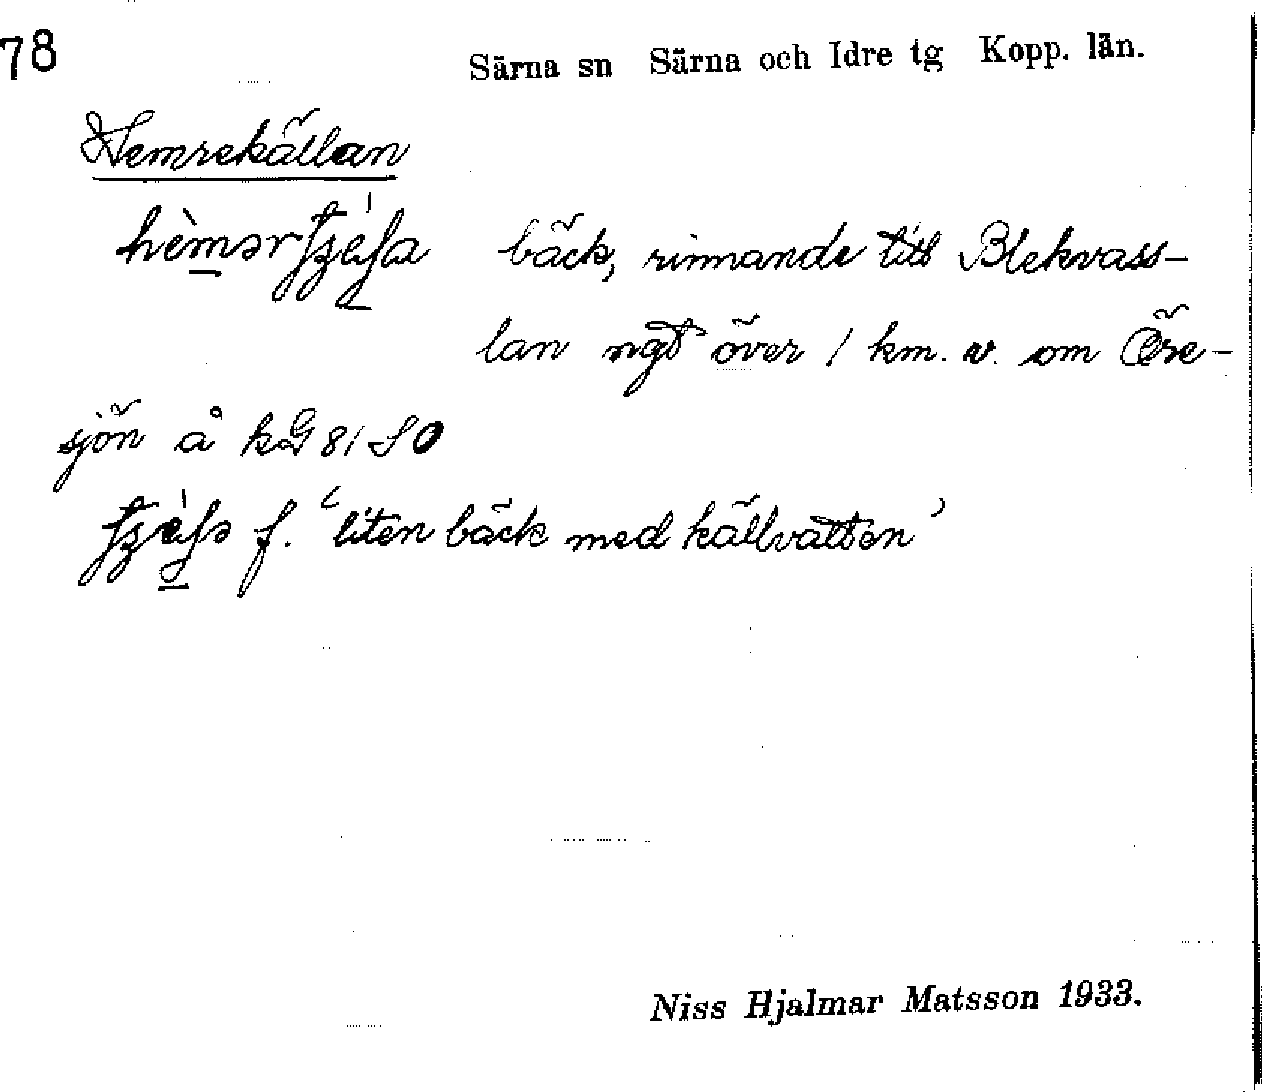 78
Särna sn Särna och Idre tg Kopp. län.
Hemrekällan
bäck, rinnande till Blekvass-
lan ngt över 1 km. v. om Öre-
sjön å kG 81 SO
f. ‘liten bäck med källvatten’
Niss Hjalmar Matsson 1933.